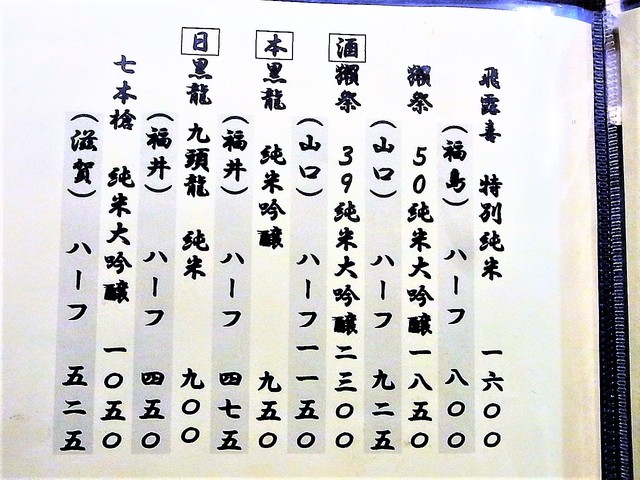 飛露喜 特別純米 一六〇〇
(福島) ハーフ 八〇〇
獺祭 50純米大吟醸 一八五〇
(山口) ハーフ 九二五
酒
獺祭 39純米大吟醸 二三〇〇
(山口) ハーフ 一一五〇
本
黒龍 純米吟醸 九五〇
(福井) ハーフ 四七五
日
黒龍 九頭龍 純米 九〇〇
(福井) ハーフ 四五〇
七本槍 純米大吟醸 一〇五〇
(滋賀) ハーフ 五二五